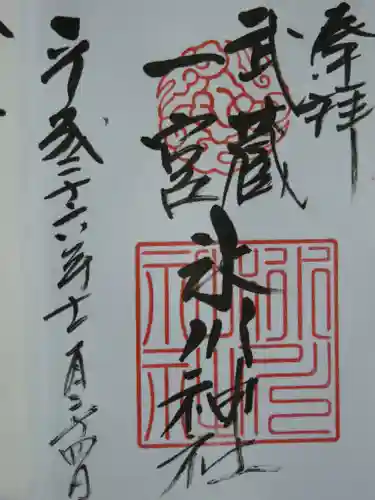 奉拝
武蔵
一宮
氷川神社
氷川
神社
平成二十六年十一月二十四日